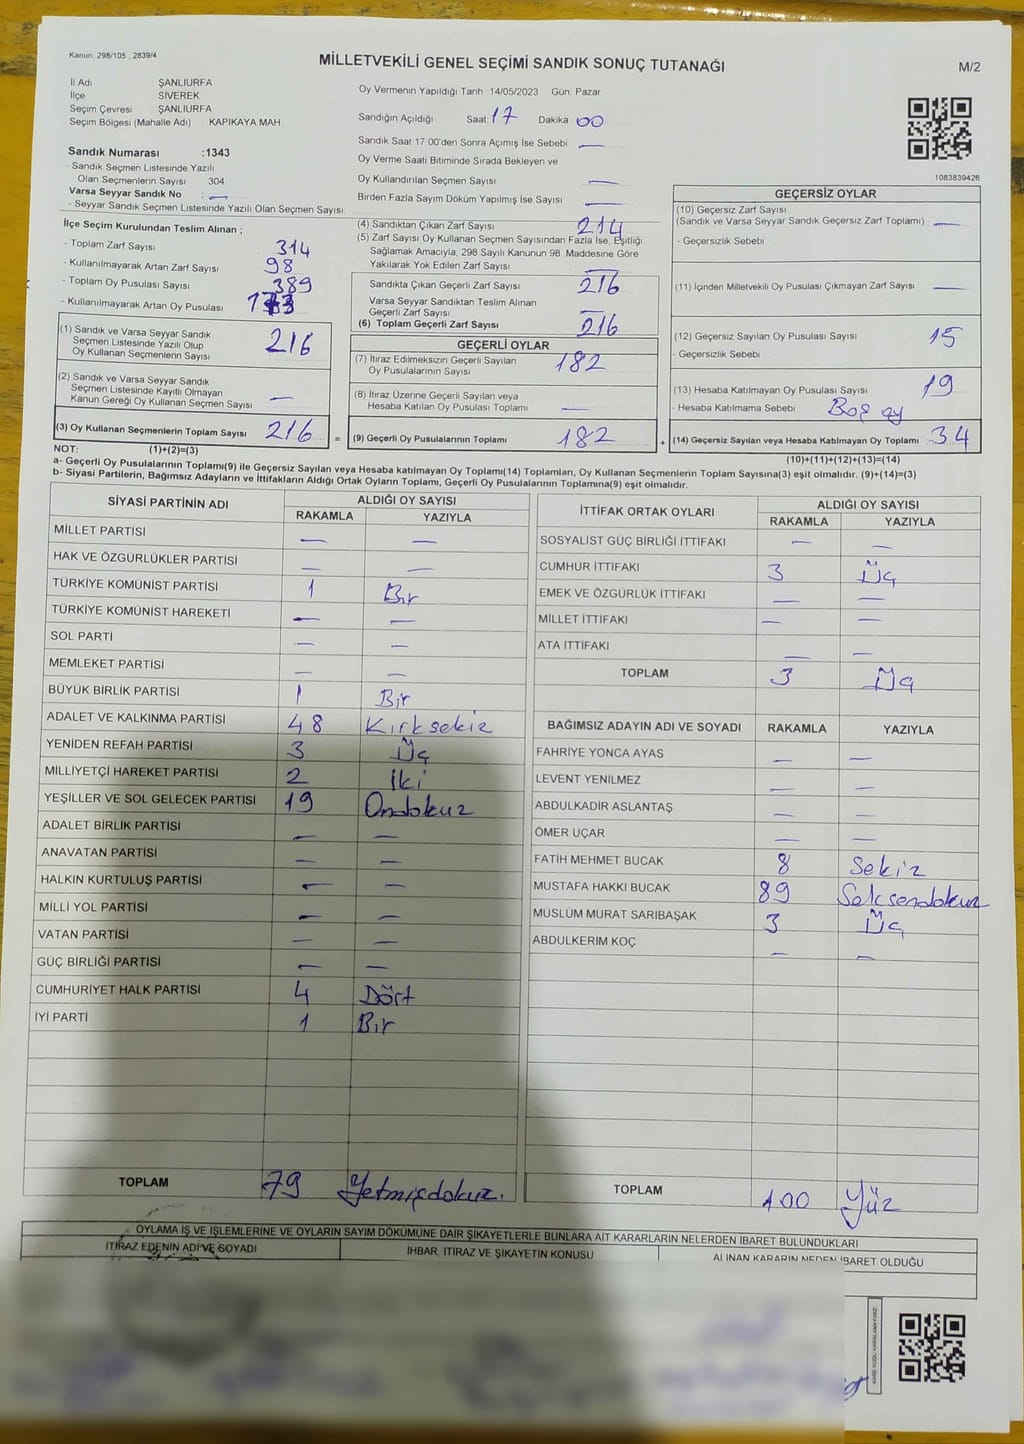 Kanun: 298/105 , 2839/4
MİLLETVEKİLİ GENEL SEÇİMİ SANDIK SONUÇ TUTANAĞI
M/2
İl Adı ŞANLIURFA
İlçe SİVEREK
Seçim Çevresi : ŞANLIURFA
Seçim Bölgesi (Mahalle Adı) : KAPIKAYA MAH.
Oy Vermenin Yapıldığı Tarih : 14/05/2023 Gün: Pazar
Sandığın Açıldığı Saat 17 Dakika 00
Sandık Saat 17.00'den Sonra Açımış İse Sebebi —
Oy Verme Saati Bitiminde Sırada Bekleyen ve
Oy Kullandırılan Seçmen Sayısı —
Birden Fazla Sayım Döküm Yapılmış İse Sayısı —
1083839426
Sandık Numarası :1343
- Sandık Seçmen Listesinde Yazılı
Olan Seçmenlerin Sayısı 304
Varsa Seyyar Sandık No : —
- Seyyar Sandık Seçmen Listesinde Yazılı Olan Seçmen Sayısı:
İlçe Seçim Kurulundan Teslim Alınan ;
- Toplam Zarf Sayısı 314
- Kullanılmayarak Artan Zarf Sayısı 98
- Toplam Oy Pusulası Sayısı 389
- Kullanılmayarak Artan Oy Pusulası
(1) Sandık ve Varsa Seyyar Sandık
Seçmen Listesinde Yazılı Olup
Oy Kullanan Seçmenlerin Sayısı 216
(2) Sandık ve Varsa Seyyar Sandık
Seçmen Listesinde Kayıtlı Olmayan
Kanun Gereği Oy Kullanan Seçmen Sayısı —
(3) Oy Kullanan Seçmenlerin Toplam Sayısı 216
(4) Sandıktan Çıkan Zarf Sayısı 214
(5) Zarf Sayısı Oy Kullanan Seçmen Sayısından Fazla İse, Eşitliği
Sağlamak Amacıyla, 298 Sayılı Kanunun 98. Maddesine Göre
Yakılarak Yok Edilen Zarf Sayısı —
Sandıkta Çıkan Geçerli Zarf Sayısı 216
Varsa Seyyar Sandıktan Teslim Alınan
Geçerli Zarf Sayısı —
(6) Toplam Geçerli Zarf Sayısı 216
GEÇERLİ OYLAR
(7) İtiraz Edilmeksizin Geçerli Sayılan
Oy Pusulalarının Sayısı 182
(8) İtiraz Üzerine Geçerli Sayılan veya
Hesaba Katılan Oy Pusulası Toplamı —
= (9) Geçerli Oy Pusulalarının Toplamı 182
GEÇERSİZ OYLAR
(10) Geçersiz Zarf Sayısı
(Sandık ve Varsa Seyyar Sandık Geçersiz Zarf Toplamı) —
- Geçersizlik Sebebi
(11) İçinden Milletvekili Oy Pusulası Çıkmayan Zarf Sayısı —
(12) Geçersiz Sayılan Oy Pusulası Sayısı 15
- Geçersizlik Sebebi
(13) Hesaba Katılmayan Oy Pusulası Sayısı 19
- Hesaba Katılmama Sebebi Boş oy
+ (14) Geçersiz Sayılan veya Hesaba Katılmayan Oy Toplamı 34
NOT: (1)+(2)=(3)
(10)+(11)+(12)+(13)=(14)
a- Geçerli Oy Pusulalarının Toplamı(9) ile Geçersiz Sayılan veya Hesaba katılmayan Oy Toplamı(14) Toplamları, Oy Kullanan Seçmenlerin Toplam Sayısına(3) eşit olmalıdır. (9)+(14)=(3)
b- Siyasi Partilerin, Bağımsız Adayların ve İttifakların Aldığı Ortak Oyların Toplamı, Geçerli Oy Pusulalarının Toplamına(9) eşit olmalıdır.
SİYASİ PARTİNİN ADI ALDIĞI OY SAYISI
RAKAMLA YAZIYLA
MİLLET PARTİSİ — —
HAK VE ÖZGÜRLÜKLER PARTİSİ — —
TÜRKİYE KOMÜNİST PARTİSİ 1 Bir
TÜRKİYE KOMÜNİST HAREKETİ — —
SOL PARTİ — —
MEMLEKET PARTİSİ — —
BÜYÜK BİRLİK PARTİSİ 1 Bir
ADALET VE KALKINMA PARTİSİ 48 Kırksekiz
YENİDEN REFAH PARTİSİ 3 Üç
MİLLİYETÇİ HAREKET PARTİSİ 2 İki
YEŞİLLER VE SOL GELECEK PARTİSİ 19 Ondokuz
ADALET BİRLİK PARTİSİ — —
ANAVATAN PARTİSİ — —
HALKIN KURTULUŞ PARTİSİ — —
MİLLİ YOL PARTİSİ — —
VATAN PARTİSİ — —
GÜÇ BİRLİĞİ PARTİSİ — —
CUMHURİYET HALK PARTİSİ 4 Dört
İYİ PARTİ 1 Bir
TOPLAM 79 Yetmişdokuz.
İTTİFAK ORTAK OYLARI ALDIĞI OY SAYISI
RAKAMLA YAZIYLA
SOSYALİST GÜÇ BİRLİĞİ İTTİFAKI — —
CUMHUR İTTİFAKI 3 Üç
EMEK VE ÖZGÜRLÜK İTTİFAKI — —
MİLLET İTTİFAKI — —
ATA İTTİFAKI — —
TOPLAM 3 Üç
BAĞIMSIZ ADAYIN ADI VE SOYADI RAKAMLA YAZIYLA
FAHRİYE YONCA AYAS — —
LEVENT YENİLMEZ — —
ABDULKADİR ASLANTAŞ — —
ÖMER UÇAR — —
FATİH MEHMET BUCAK 8 Sekiz
MUSTAFA HAKKI BUCAK 89 Seksendokuz
MÜSLÜM MURAT SARIBAŞAK 3 Üç
ABDULKERİM KOÇ — —
TOPLAM 100 Yüz
OYLAMA İŞ VE İŞLEMLERİNE VE OYLARIN SAYIM DÖKÜMÜNE DAİR ŞİKAYETLERLE BUNLARA AİT KARARLARIN NELERDEN İBARET BULUNDUKLARI
İTİRAZ EDENİN ADI VE SOYADI İHBAR, İTİRAZ VE ŞİKAYETİN KONUSU ALINAN KARARIN NEDEN İBARET OLDUĞU